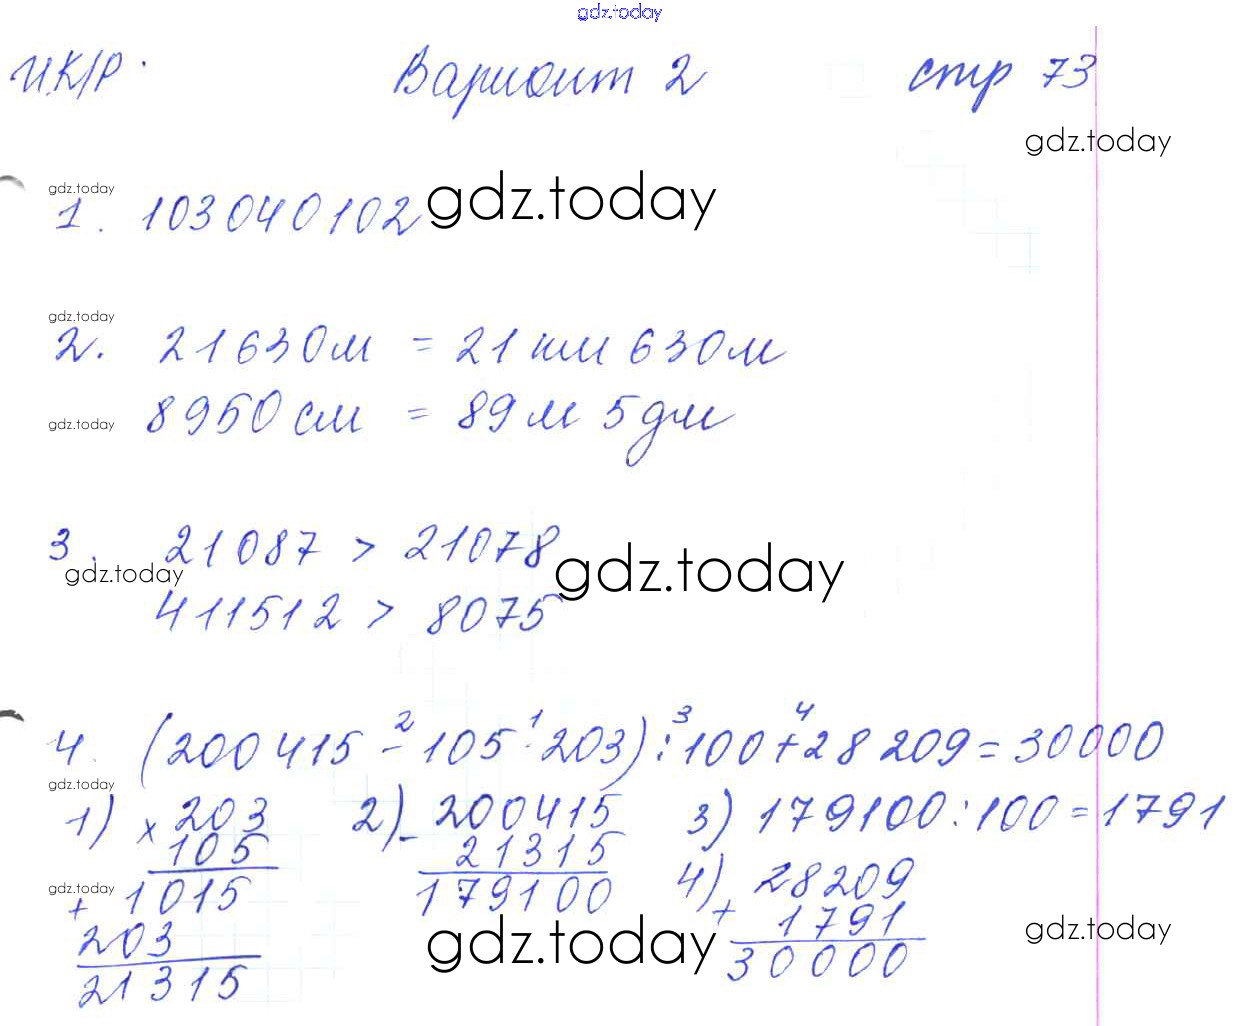 gdz.today
И.К/Р. Вариант 2 стр 73
gdz.today
gdz.today
1. 103040102 gdz.today
gdz.today
2. 21630м = 21 км 630м
gdz.today 8950 см = 89 м 5 дм
3. 21087 > 21078
gdz.today gdz.today
411512 > 8075
4. (200415 -² 105 ·¹ 203) :³ 100 +⁴ 28209 = 30000
gdz.today
1) × 203 2) - 200415 3) 179100 : 100 = 1791
105 21315 4) + 28209
gdz.today + 1015 179100 1791
203 gdz.today 30000 gdz.today
21315